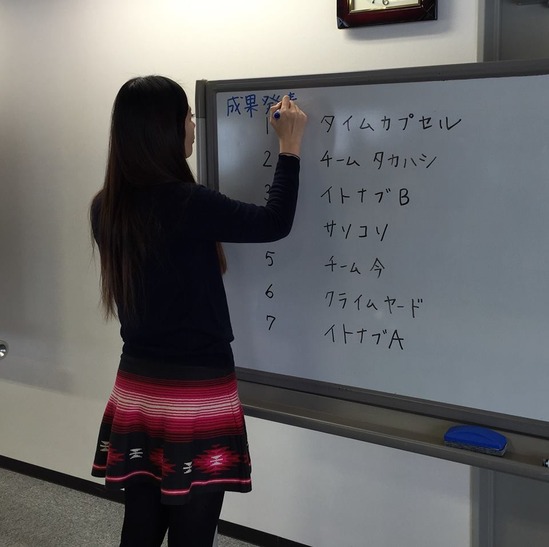 成果発表
1 タイムカプセル
2 チーム タカハシ
3 イトナブB
サソコソ
5 チーム今
6 クライムヤード
7 イトナブA